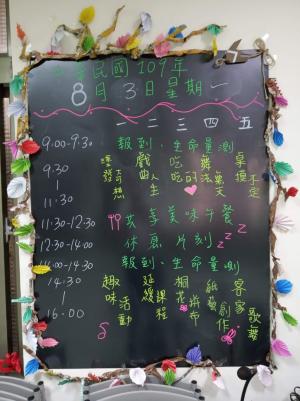 中華民國109年
8月3日星期一
一 二 三 四 五
9:00-9:30 報到、生命量測
9:30
|
11:30
發奇想
戲曲人生
11:30-12:30 共享美味午餐
12:30-14:00 休息片刻 zzz
14:00-14:30 報到、生命量測
14:30
|
16:00
趣味活動
延緩課程
桐花拼布
紙藝創作
客家歌舞